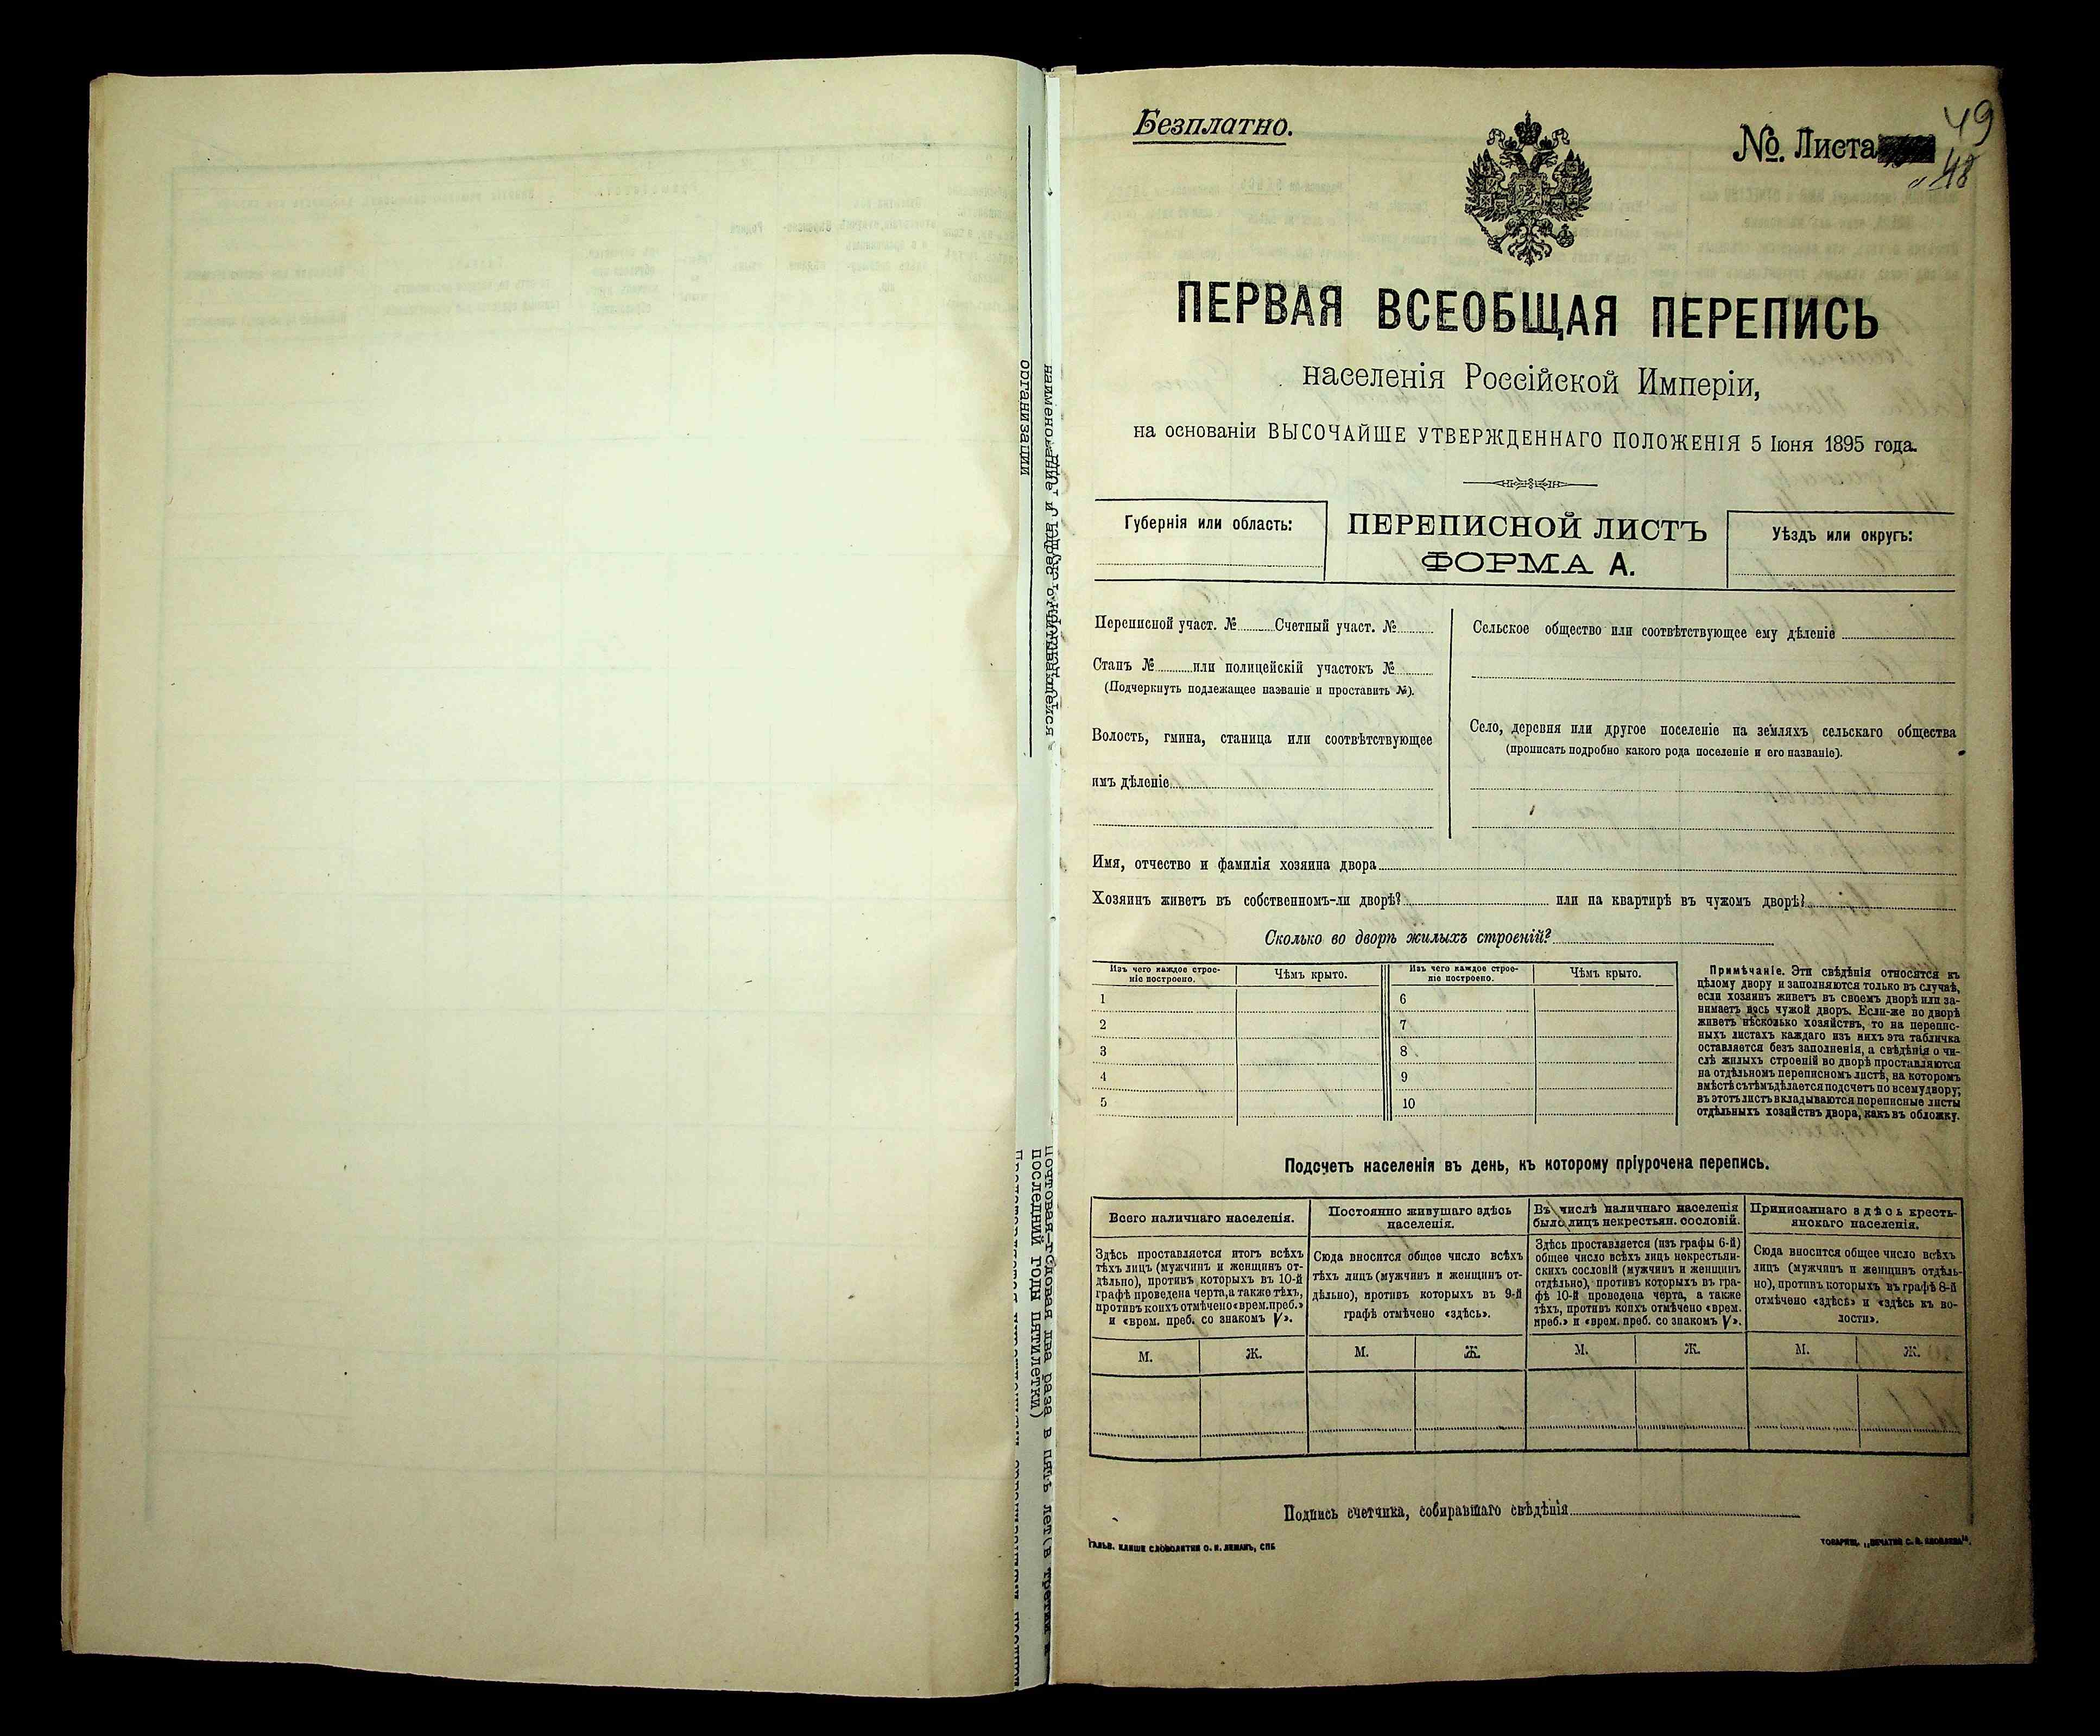 Безплатно.
№. Листа
49
48
ПЕРВАЯ ВСЕОБЩАЯ ПЕРЕПИСЬ
населенія Россійской Имперіи,
на основаніи ВЫСОЧАЙШЕ УТВЕРЖДЕННАГО ПОЛОЖЕНІЯ 5 Іюня 1895 года.
Губернія или область:
ПЕРЕПИСНОЙ ЛИСТЪ
ФОРМА А.
Уѣздъ или округъ:
Переписной участ. № Счетный участ. №
Станъ № или полицейскій участокъ №
(Подчеркнуть подлежащее названіе и проставить №).
Волость, гмина, станица или соотвѣтствующее
имъ дѣленіе
Сельское общество или соотвѣтствующее ему дѣленіе
Село, деревня или другое поселеніе на земляхъ сельскаго общества
(прописать подробно какого рода поселеніе и его названіе).
Имя, отчество и фамилія хозяина двора
Хозяинъ живетъ въ собственномъ-ли дворѣ? или на квартирѣ въ чужомъ дворѣ?
Сколько во дворѣ жилыхъ строеній?
Изъ чего каждое строе-
ніе построено.
Чѣмъ крыто.
Изъ чего каждое строе-
ніе построено.
Чѣмъ крыто.
1 6
2 7
3 8
4 9
5 10
Примѣчаніе. Эти свѣдѣнія относятся къ
цѣлому двору и заполняются только въ случаѣ,
если хозяинъ живетъ въ своемъ дворѣ или за-
нимаетъ весь чужой дворъ. Если-же во дворѣ
живетъ нѣсколько хозяйствъ, то на перепис-
ныхъ листахъ каждаго изъ нихъ эта табличка
оставляется безъ заполненія, а свѣдѣнія о чи-
слѣ жилыхъ строеній во дворѣ проставляются
на отдѣльномъ переписномъ листѣ, на которомъ
вмѣстѣ съ тѣмъ дѣлается подсчетъ по всему двору;
въ этотъ листъ вкладываются переписные листы
отдѣльныхъ хозяйствъ двора, какъ въ обложку.
Подсчетъ населенія въ день, къ которому пріурочена перепись.
Всего наличнаго населенія.
Здѣсь проставляется итогъ всѣхъ
тѣхъ лицъ (мужчинъ и женщинъ от-
дѣльно), противъ которыхъ въ 10-й
графѣ проведена черта, а также тѣхъ,
противъ коихъ отмѣчено «врем. преб.»
и «врем. преб. со знакомъ V».
Постоянно живущаго здѣсь
населенія.
Сюда вносится общее число всѣхъ
тѣхъ лицъ (мужчинъ и женщинъ от-
дѣльно), противъ которыхъ въ 9-й
графѣ отмѣчено «здѣсь».
Въ числѣ наличнаго населенія
было лицъ некрестьян. сословій.
Здѣсь проставляется (изъ графы 6-й)
общее число всѣхъ лицъ некрестьян-
скихъ сословій (мужчинъ и женщинъ
отдѣльно), противъ которыхъ въ гра-
фѣ 10-й проведена черта, а также
тѣхъ, противъ коихъ отмѣчено «врем.
преб.» и «врем. преб. со знакомъ V».
Приписаннаго здѣсь кресть-
янскаго населенія.
Сюда вносится общее число всѣхъ
лицъ (мужчинъ и женщинъ отдѣль-
но), противъ которыхъ въ графѣ 8-й
отмѣчено «здѣсь» и «здѣсь къ во-
лости».
М. Ж. М. Ж. М. Ж. М. Ж.
Подпись счетчика, собиравшаго свѣдѣнія
ГАЛЬВ. КЛИШЕ СЛОВОЛИТНИ О. И. ЛЕМАНЪ, СПБ
ТОВАРИЩ. „ПЕЧАТНЯ С. П. ЯКОВЛЕВА“.
наименование и адрес отчитывающейся
организации
почтовая-годовая два раза в пять лет (в третий и
последний годы пятилетки)